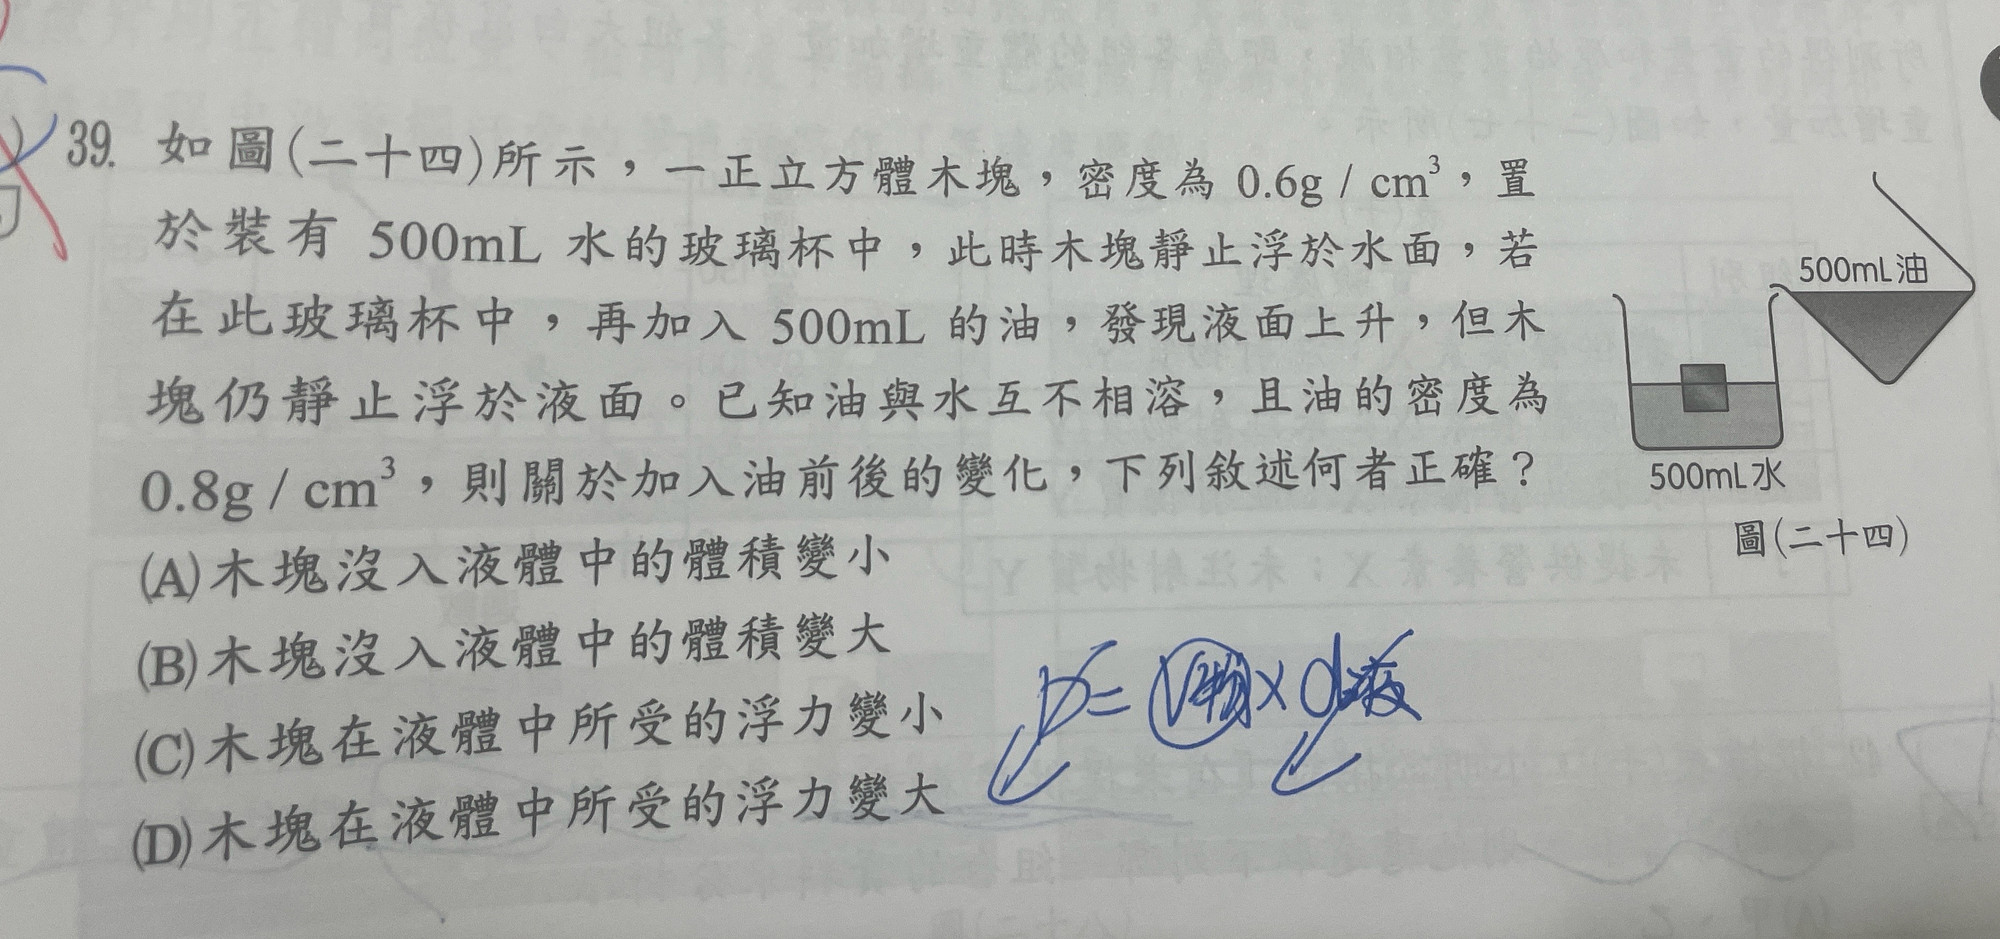 39. 如圖(二十四)所示，一正立方體木塊，密度為 0.6g / cm³，置
於裝有 500mL 水的玻璃杯中，此時木塊靜止浮於水面，若
在此玻璃杯中，再加入 500mL 的油，發現液面上升，但木
塊仍靜止浮於液面。已知油與水互不相溶，且油的密度為
0.8g / cm³，則關於加入油前後的變化，下列敘述何者正確？
(A)木塊沒入液體中的體積變小
(B)木塊沒入液體中的體積變大
(C)木塊在液體中所受的浮力變小
(D)木塊在液體中所受的浮力變大
500mL油
500mL水
圖(二十四)